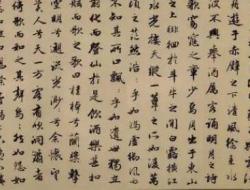 遊於赤壁之下清風徐來水
波不興舉酒屬客誦明月之詩
歌窈窕之章少焉月出於東山
之上徘徊於斗牛之間白露橫江
水光接天縱一葦之所如凌萬
頃之茫然浩
不知其所止飄飄乎如遺世獨立
羽化而登仙於是飲酒樂甚
舷而歌之歌曰桂棹兮蘭槳擊
空明兮泝流光渺渺兮余懷望
美人兮天一方客有吹洞簫者
倚歌而和之其聲嗚嗚然如怨如